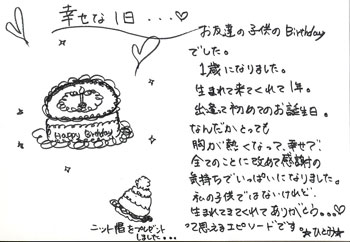 幸せな1日...♡
お友達の子供のBirthday
でした。
1歳になりました。
生まれて来てくれて1年。
出逢って初めてのお誕生日。
なんだかとっても
胸が熱くなって、幸せで
全てのことに改めて感謝の
気持ちでいっぱいになりました。
私の子供ではないけれど、
生まれてきてくれてありがとう...♡
って思えるエピソードです。
★ひとみ★
Happy Birthday
ニット帽をプレゼント
しました...